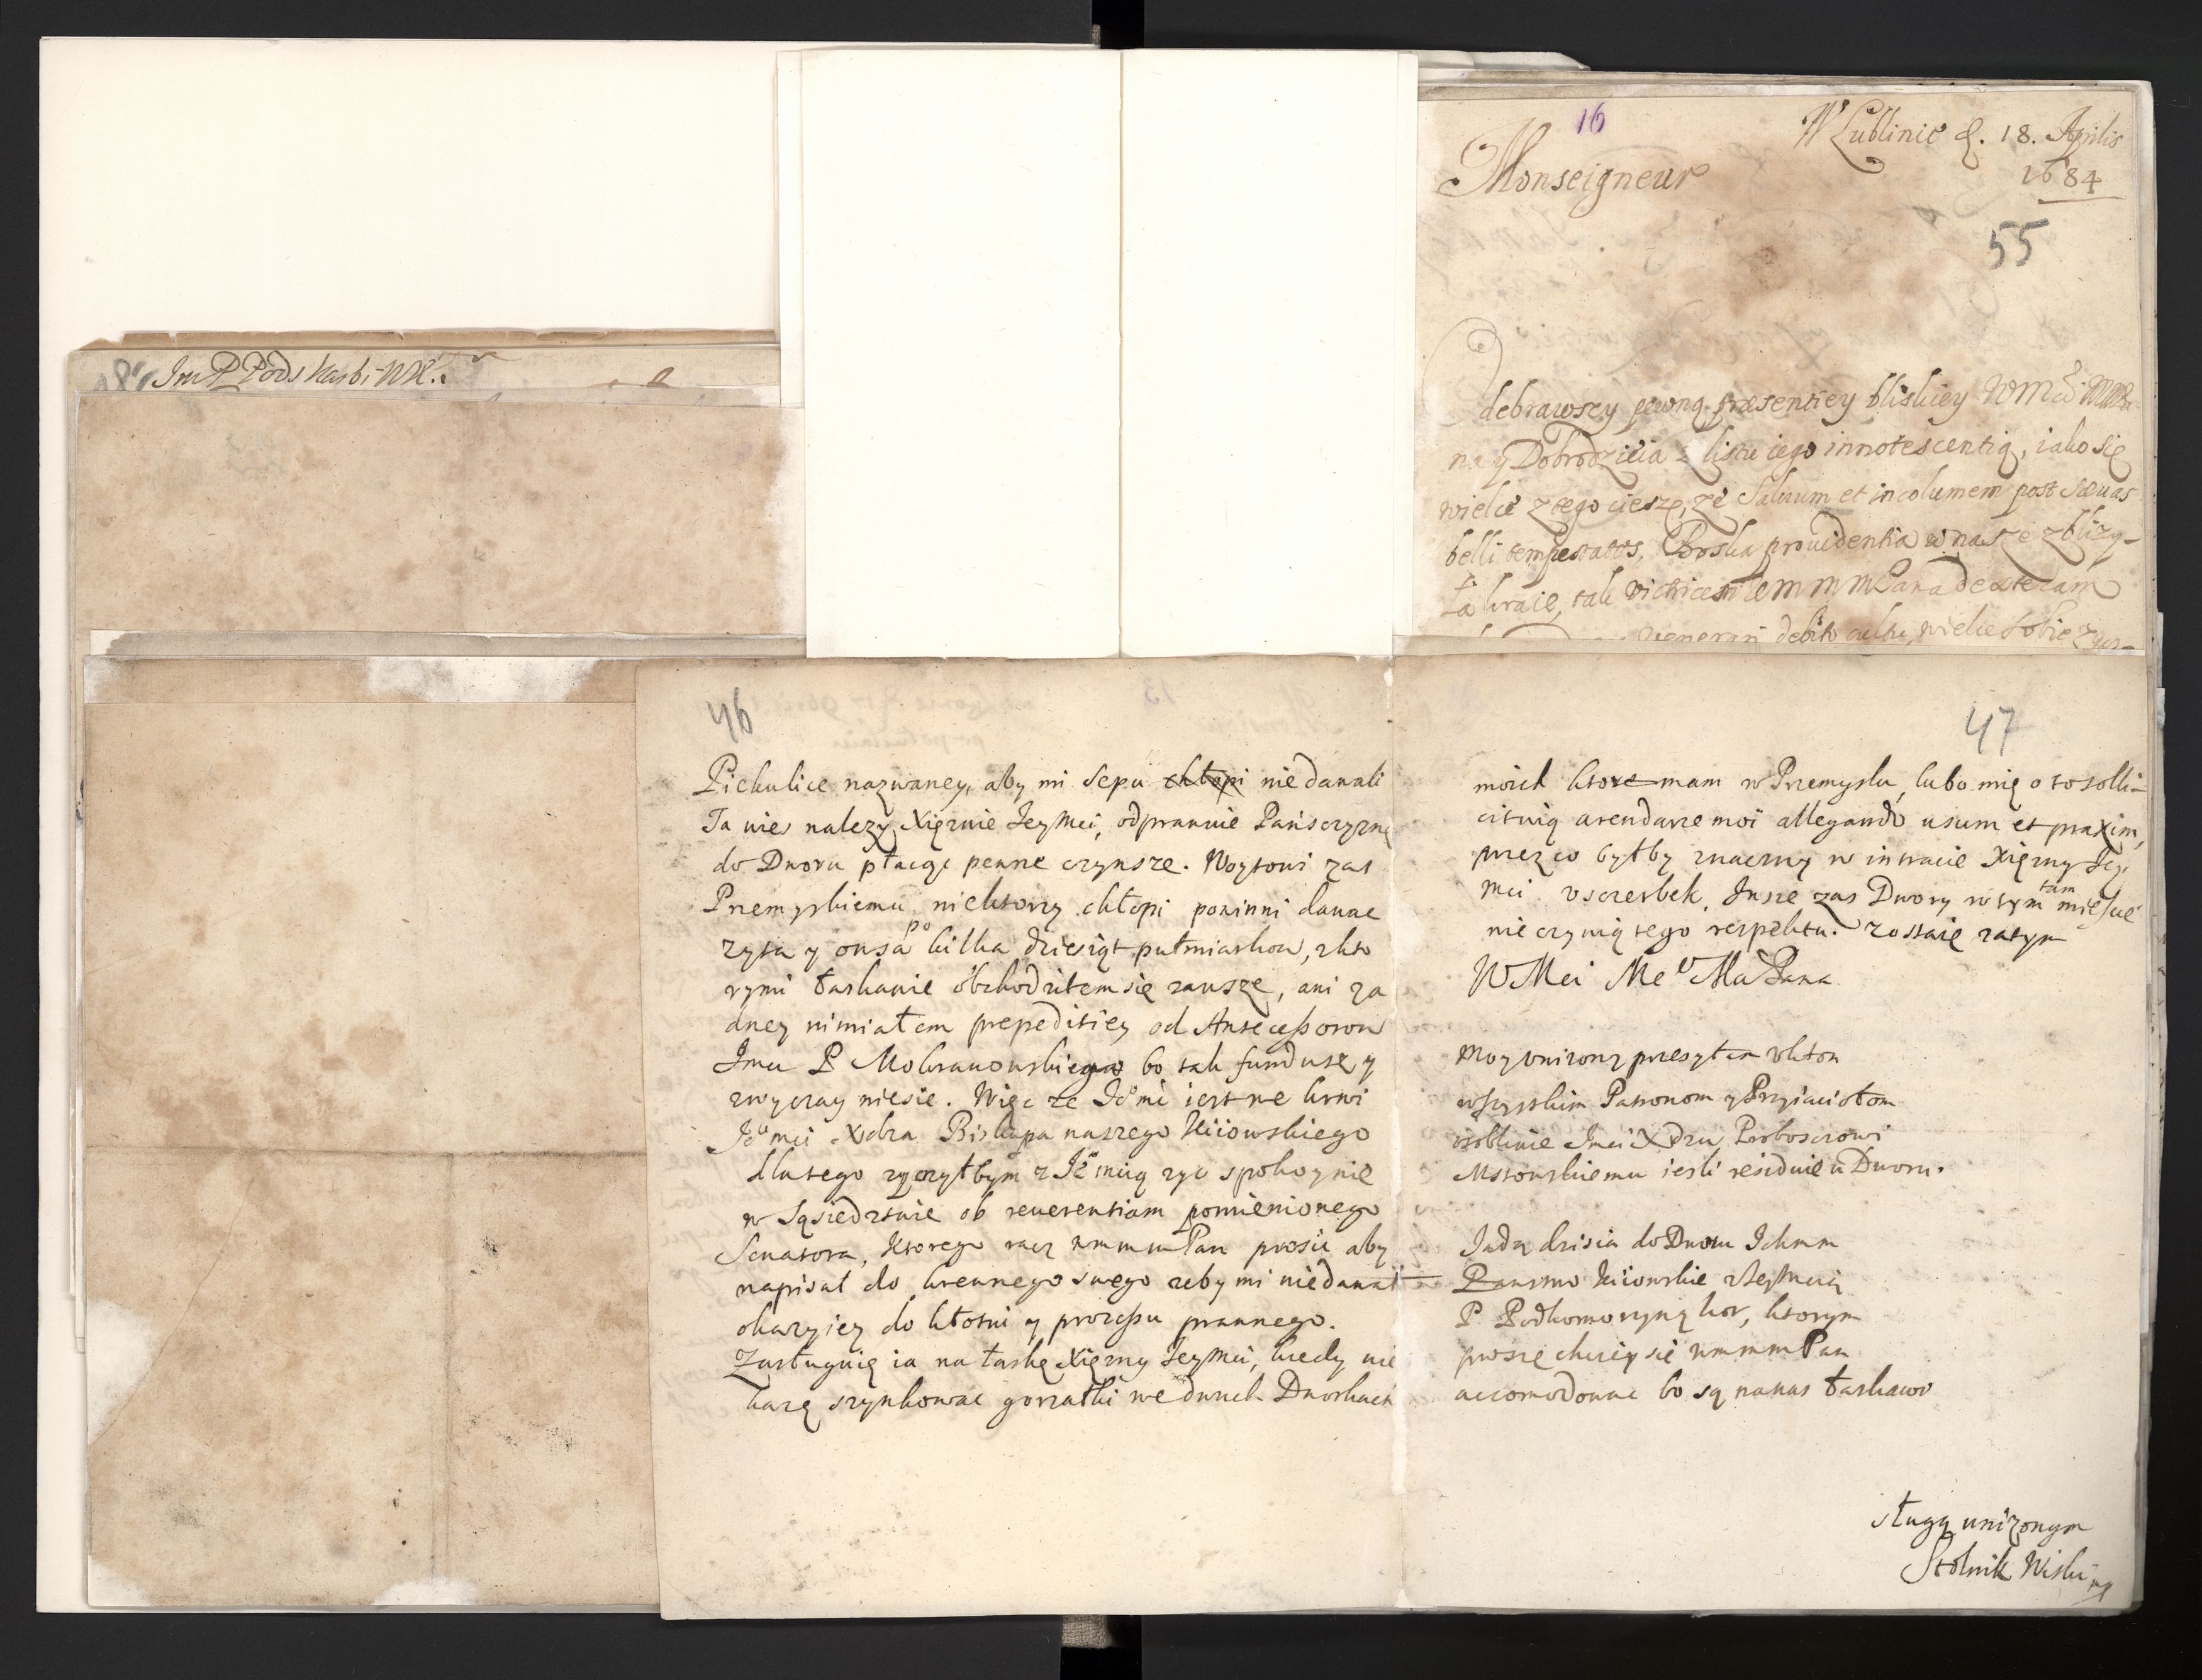 Im P Pods karbi WK.
16
W Lublinie d. 18. Aprilis
1684
Monseigneur
55
debrawszy pewną præsentiey bliskiey WMci
na y Dobrodzieia z listu iego innotescentią, iako się
wielce z tego cieszę, że salvum et incolumem post sævas
belli tempestates, Boska providentia w nasze zbliży-
ła kraie, tak victricem WMMM Pana dexteram
venerari debito cultu, wielce sobie
46
Pikulice nazwaney, aby mi sepu chłopi niedawali
Ta wies nalezy Xięznie JeyMci, odprawuie Pańsczyznę
do Dworu płacąc pewne czynsze. Woytowi zas
Przemyskiemu niektorzy chłopi powinni dawac
zyta y owsa po kilka dziesiąt pułmiarkow, z kto
rymi łaskawie obchodziłem się zawsze, ani za
dney nimiałem prepeditiey od Antecessorow
Imci P Mokranowskiego bo tak fundusz y
zwyczay niesie. Więc ze Jemć iest we krwi
Jemci Xdza Biskupa naszego Kiiowskiego
dlatego zyczyłbym z Jemcią zyc spokoynie
w Sąsiedztwie ob reverentiam pomienionego
Senatora, ktorego racz wmmm Pan prosic aby
napisał do krewnego swego zeby mi niedawał
okazyiey do kłotni y processu prawnego.
Zasługuię ia na łaskę Xięzny JeyMci, kiedy nie
kazę szynkowac gorzałki we dwuch Dworkach
47
moich ktore mam w Przemyslu, lubo mię o to solli-
cituią arendarze moi allegando usum et praxim,
przez co byłby znaczny w intracie Xięzny Jey
Mci uszczerbek. Insze zas Dwory w tym tam mieyscu
nie czynią tego respektu. Zostaię zatym
WMci Me MłPana
Moy unizony przesyłam ukłon
wszystkim Patronom y Przyiaciołom
osobliwie Imci Xdzu Proboszczowi
Mstowskiemu iesli residuie u Dworu.
Jadą dzisia do Dworu Ichmm
Panstwo Kiiowskie z JeyMcią
P. Podkomorzyną kor, ktorym
proszę chciey się wmmm Pan
accomodowac bo są na nas łaskawi
sługą unizonym
Stolnik Wiski mp